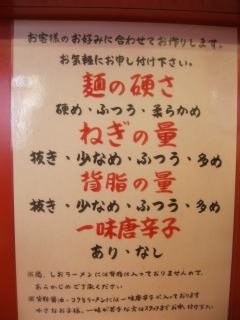 お客様のお好みに合わせてお作りします。
お気軽にお申し付け下さい。
麺の硬さ
硬め・ふつう・柔らかめ
ねぎの量
抜き・少なめ・ふつう・多め
背脂の量
抜き・少なめ・ふつう・多め
一味唐辛子
あり・なし
しおラーメンには背脂は入っておりませんので、
あらかじめご了承ください
ラーメンには一味唐辛子が入っております
小さなお子様、一味が苦手な方はスタッフまでお申し付け下さい。